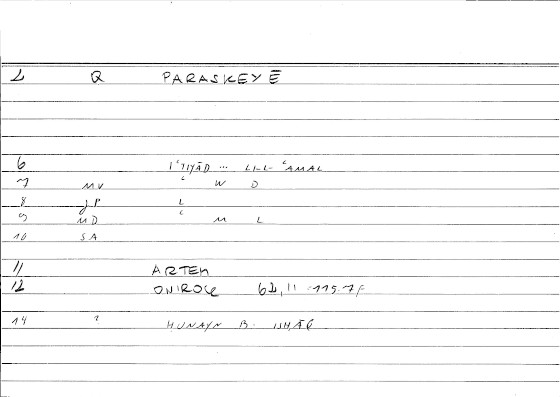 2 Q PARASKEYĒ
6 IʿTIYĀD ... LI-L-ʿAMAL
7 MV ʿ W D
8 JP L
9 MD ʿ M L
10 SA
11 ARTEM
12 ONIROC 62,11
14 ? ḤUNAYN B. ISḤĀQ